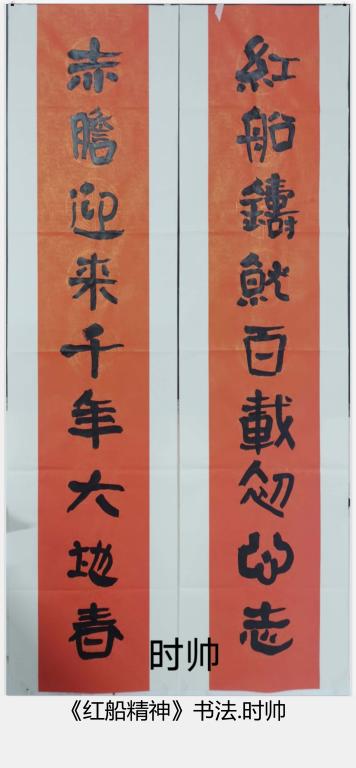 紅船鑄就百載初心志
赤膽迎来千年大地春
时帅
《红船精神》书法.时帅